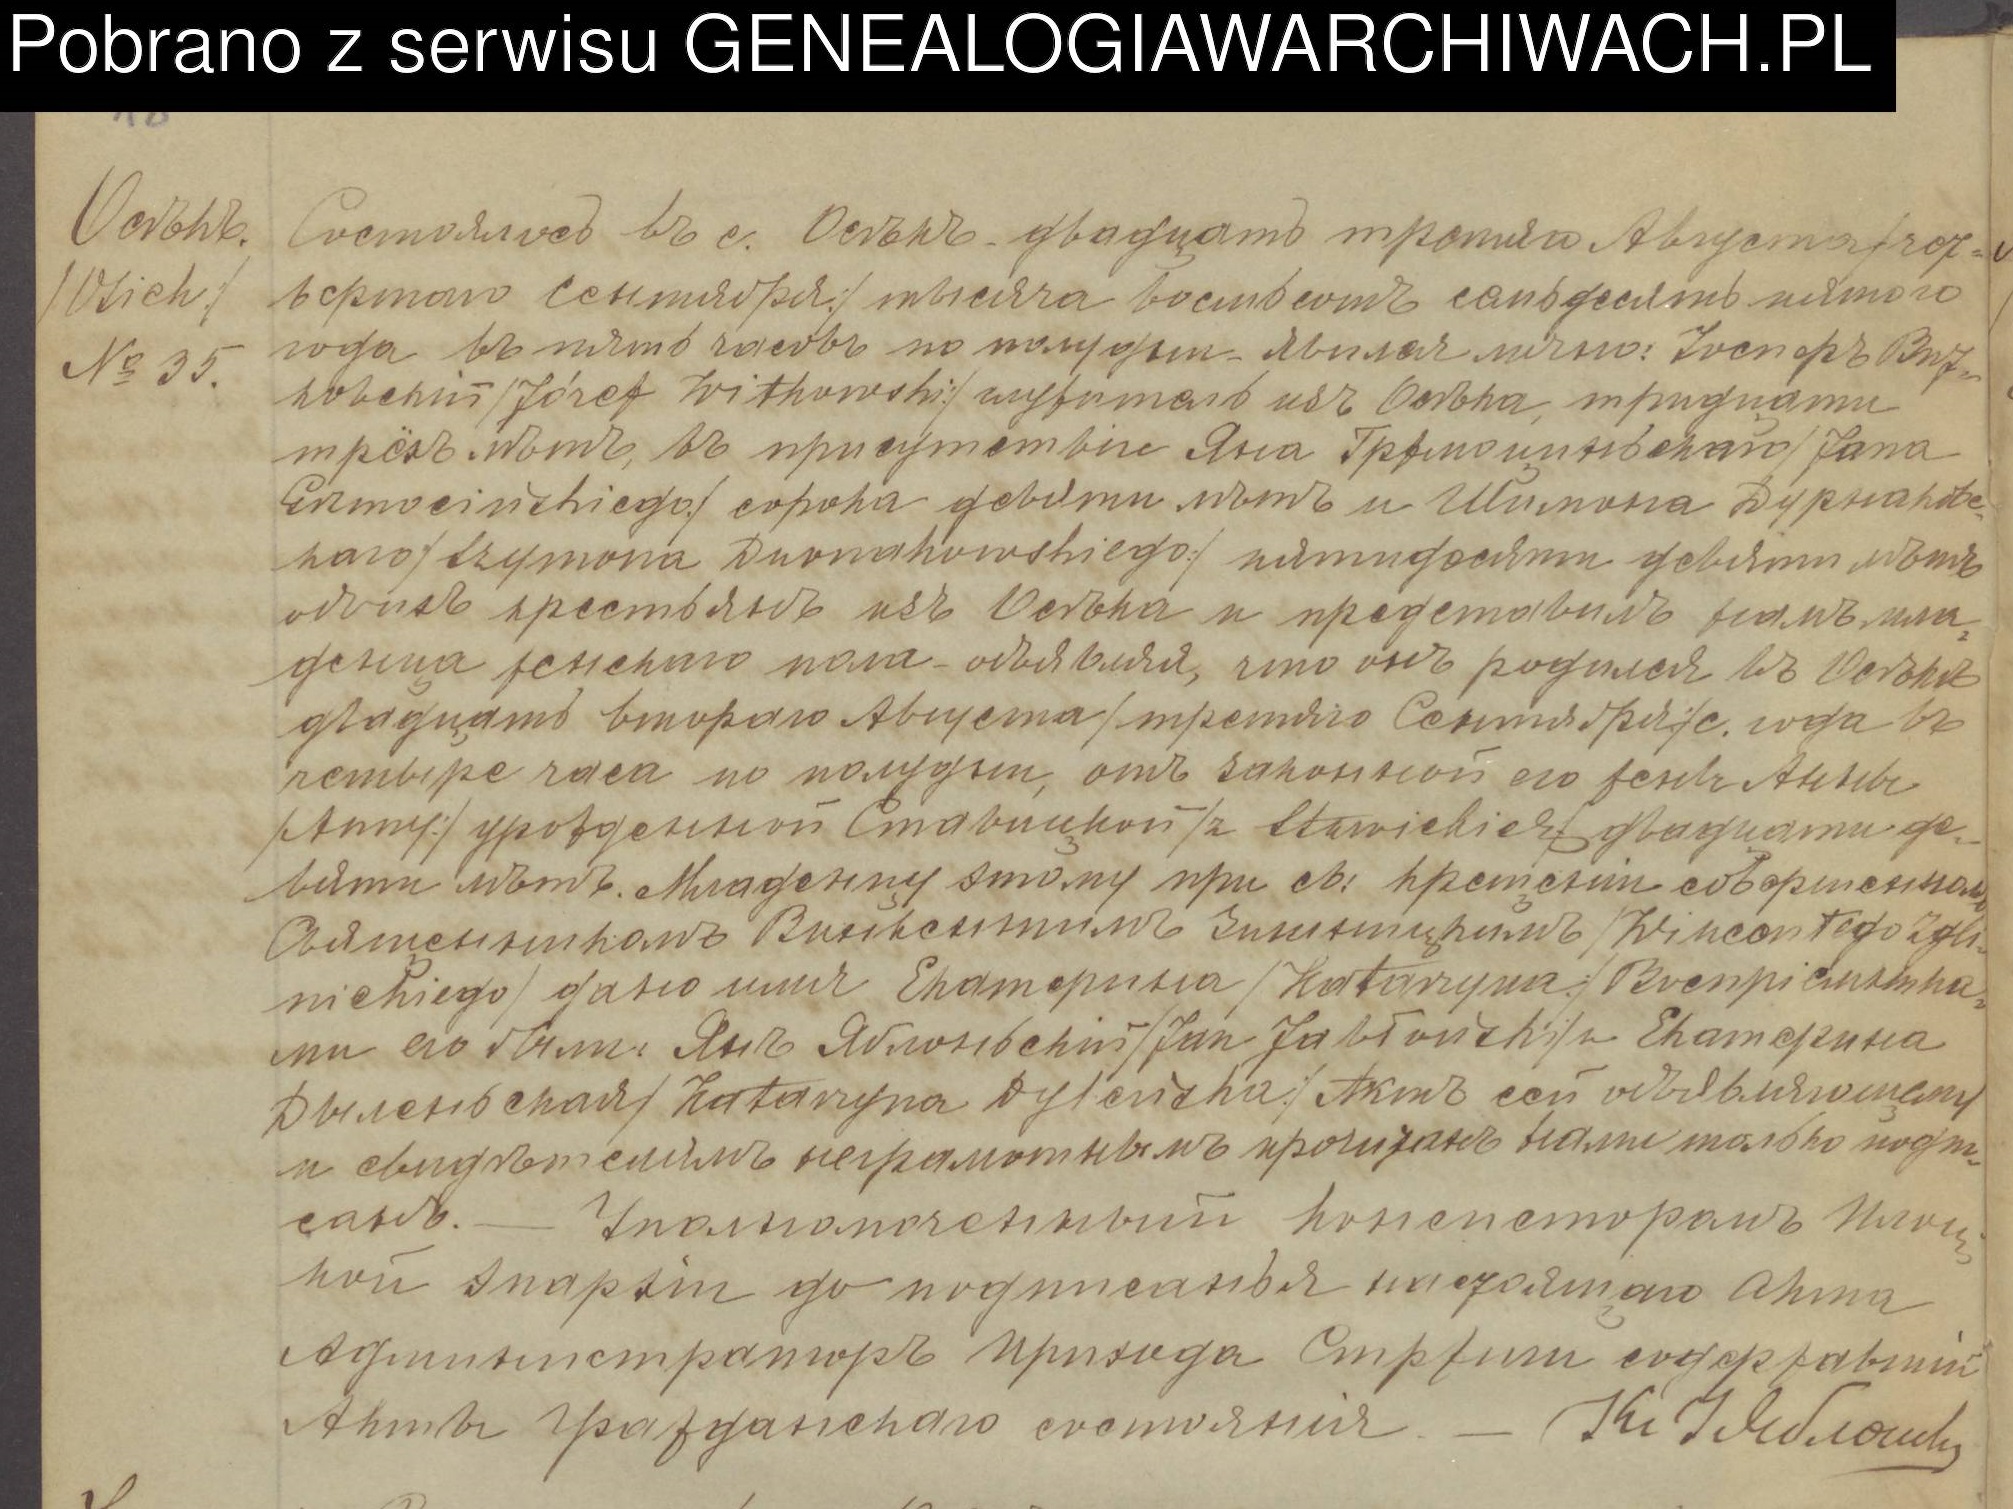 Pobrano z serwisu GENEALOGIAWARCHIWACH.PL
Осѣкъ.
/Osiek:/
№ 35.
Состоялось въ с. Осѣкѣ - двадцать третьяго Августа /чет-
вертаго Сентября:/ тысяча восемьсотъ семьдесятъ пятого
года въ пять часовъ по полудни - явился лично: Іосифъ Вит-
ковскій /Józef Witkowski:/ служитель изъ Осѣка, тридцати
трёхъ лѣтъ, въ присутствіи Яна Грѣмоциньскаго /Jana
Grzmocińskiego/ сорока девяти лѣтъ и Шимона Дурнаковс-
каго /Szymona Durnakowskiego:/ пятидесяти девяти лѣтъ
обоихъ крестьянъ изъ Осѣка и представилъ намъ мла-
денца женскаго пола - объявляя, что онъ родился въ Осѣкѣ
двадцать втораго Августа /третьяго Сентября:/ с. года въ
четыре часа по полудни, отъ законной его жены Анны
/Anny:/ урожденной Ставицкой /z Stawickich:/ двадцати де-
вяти лѣтъ. Младенцу этому при св: крещеніи совершенномъ
Священникомъ Винцентимъ /Wincentego Zgli-
nickiego/ дано имя Екатерина /Katarzyna:/ Воспріемника-
ми его были: Янъ Яблоньскій /Jan Jabłoński:/ и Екатерина
Дыленьская /Katarzyna Dyleńska:/ Актъ сей объявляющему
и свидѣтелямъ неграмотнымъ прочитанъ нами только подпи-
санъ. — Уполномоченный консисторомъ Плоц-
кой Эпархіи до подписанья настоящаго Акта
Администраторъ Прихода содержавшій
Акты Гражданскаго состоянія. — Кс